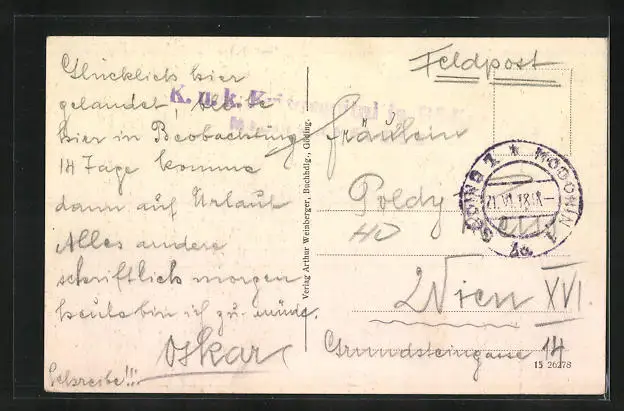 Feldpost
Glücklich hier
gelandet, bleibe
hier in Beobachtung
14 Tage komme
dann auf Urlaub
Alles andere
schriftlich morgen
heute bin ich zu müde.
Oskar
schreibe!!!
K. u. k.
Verlag Arthur Weinberger, Buchhdlg., Göding.
Fräulein
Poldy
GÖDING 1 * HODONIN 1
21.VI.18
Wien XVI.
Grundsteingasse 14
15 26278